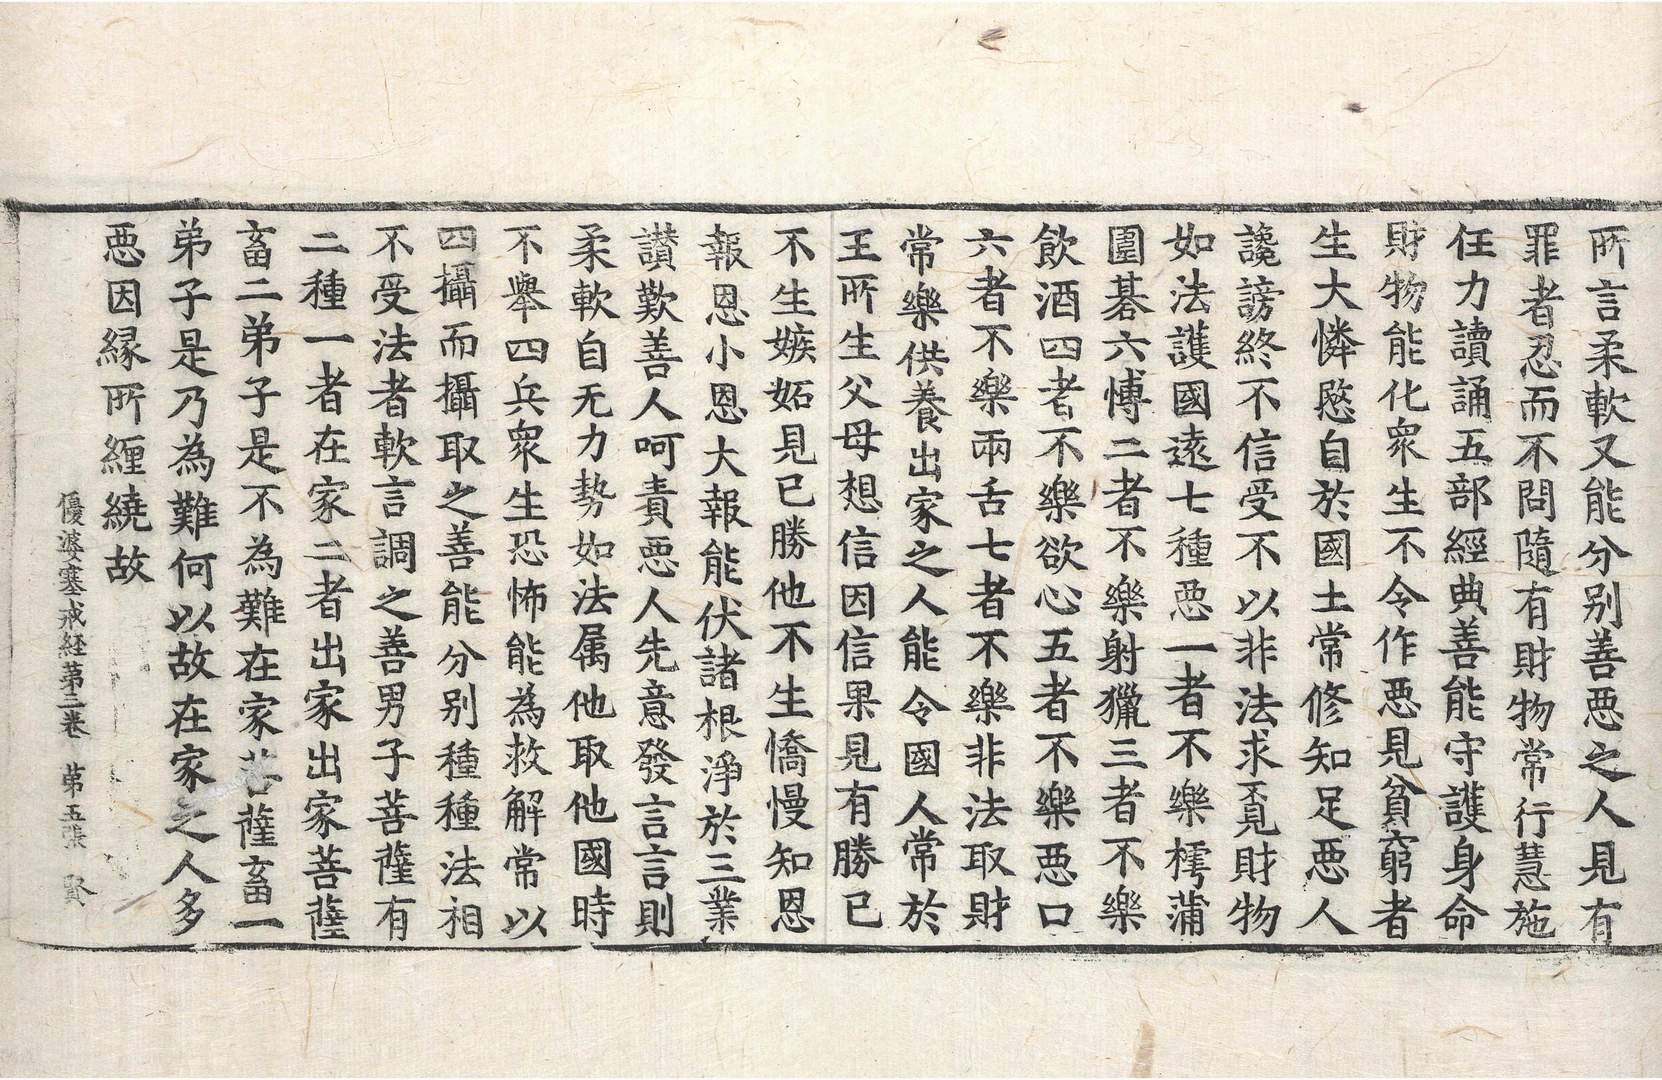 所言柔軟又能分別善惡之人見有
罪者忍而不問隨有財物常行慧施
任力讀誦五部經典善能守護身命
財物能化衆生不令作惡見貧窮者
生大憐愍自於國土常修知足惡人
讒謗終不信受不以非法求覓財物
如法護國遠七種惡一者不樂樗蒲
圍碁六愽二者不樂射獵三者不樂
飲酒四者不樂欲心五者不樂惡口
六者不樂兩舌七者不樂非法取財
常樂供養出家之人能令國人常於
王所生父母想信因信果見有勝已
不生嫉妬見已勝他不生憍慢知恩
報恩小恩大報能伏諸根淨於三業
讃歎善人呵責惡人先意發言言則
柔軟自无力勢如法属他取他國時
不舉四兵衆生恐怖能為救解常以
四攝而攝取之善能分別種種法相
不受法者軟言調之善男子菩薩有
二種一者在家二者出家出家菩薩
畜二弟子是不為難在家菩薩畜一
弟子是乃為難何以故在家之人多
惡因縁所纏繞故
優婆塞戒経第三卷　第五張　賢